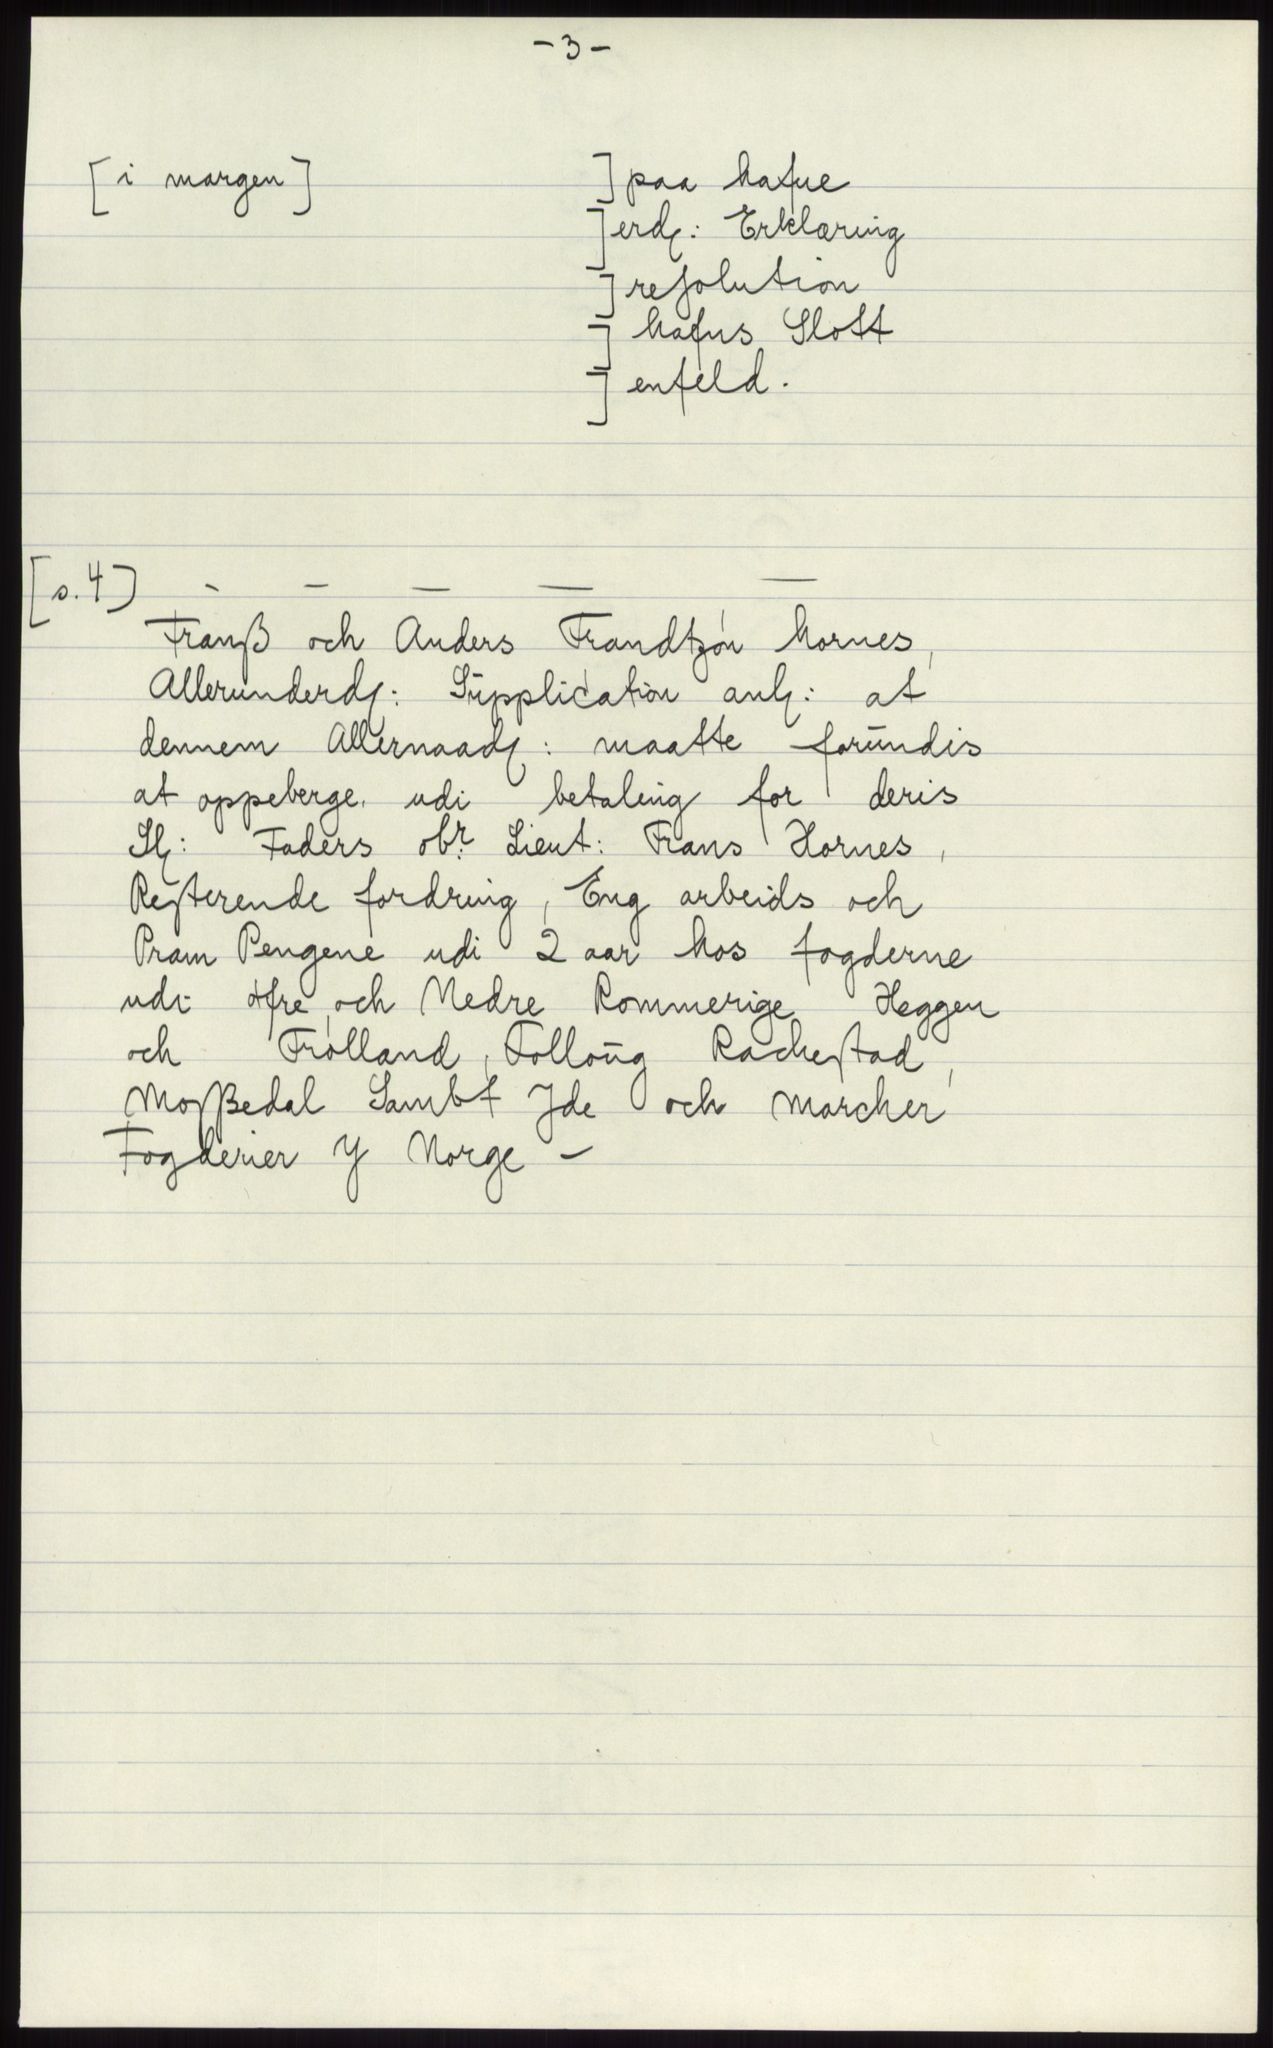 - 3 -
[i margen] ] paa hafue
] erdꝭ: Erklæring
] resolution
] hafns Slott
] enfeld.
[s. 4] - - - - -
Franß och Anders Frandtzøn hornes,
Allerunderdꝭ: Sŭpplication anlꝭ: at
dennem Allernaadꝭ: maatte forŭndis
at oppeberge udi betaling for deris
Slꝭ: Faders obr: Lieut: Frans Hornes,
Resterende fordring, Eng arbeids och
Pram Pengene udi 2 aar hos fogderne
udi øfre och Nedre Rommerige Heggen
och Frølland, Folloŭg Rachestad,
Mosßedal Sambt Jde och marcher
Fogderier Y Norge -